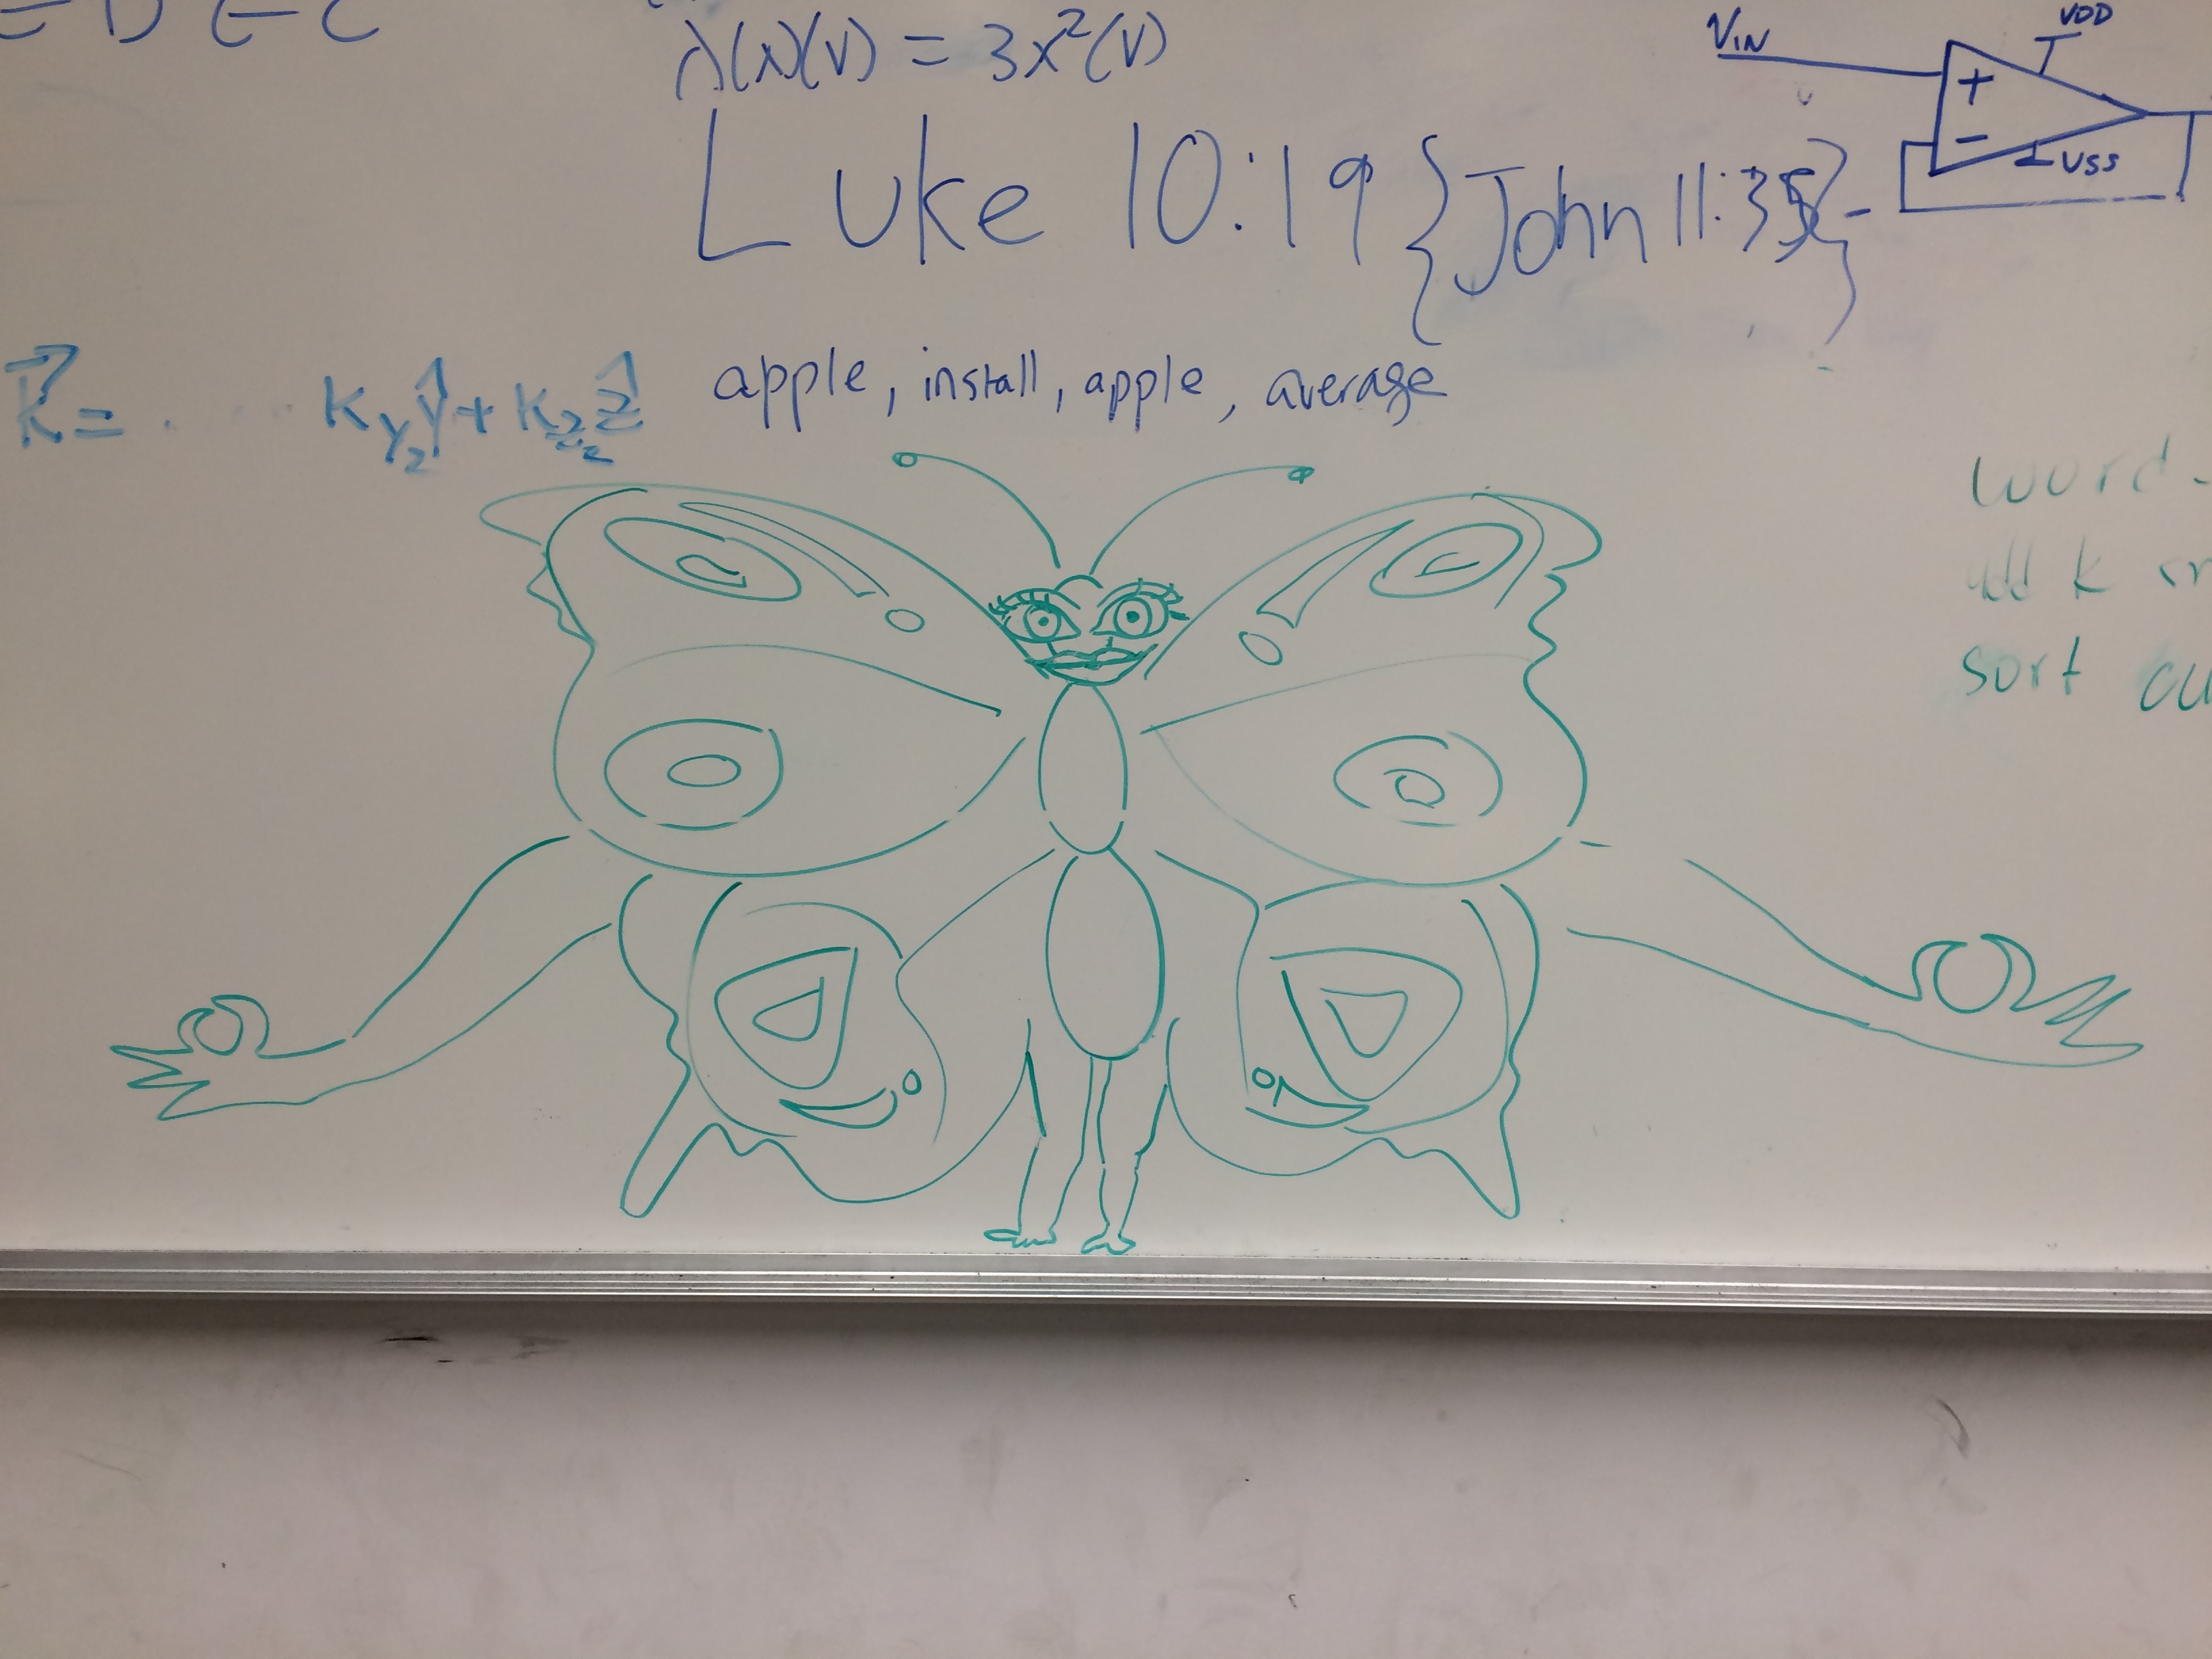 λ(x)(v) = 3x²(v)
VIN
VDD
+
-
VSS
Luke 10:19 {John 11:35}
k⃗ =
k_y₂ŷ + k_z₂ẑ
apple, install, apple, average
word
add k
sort